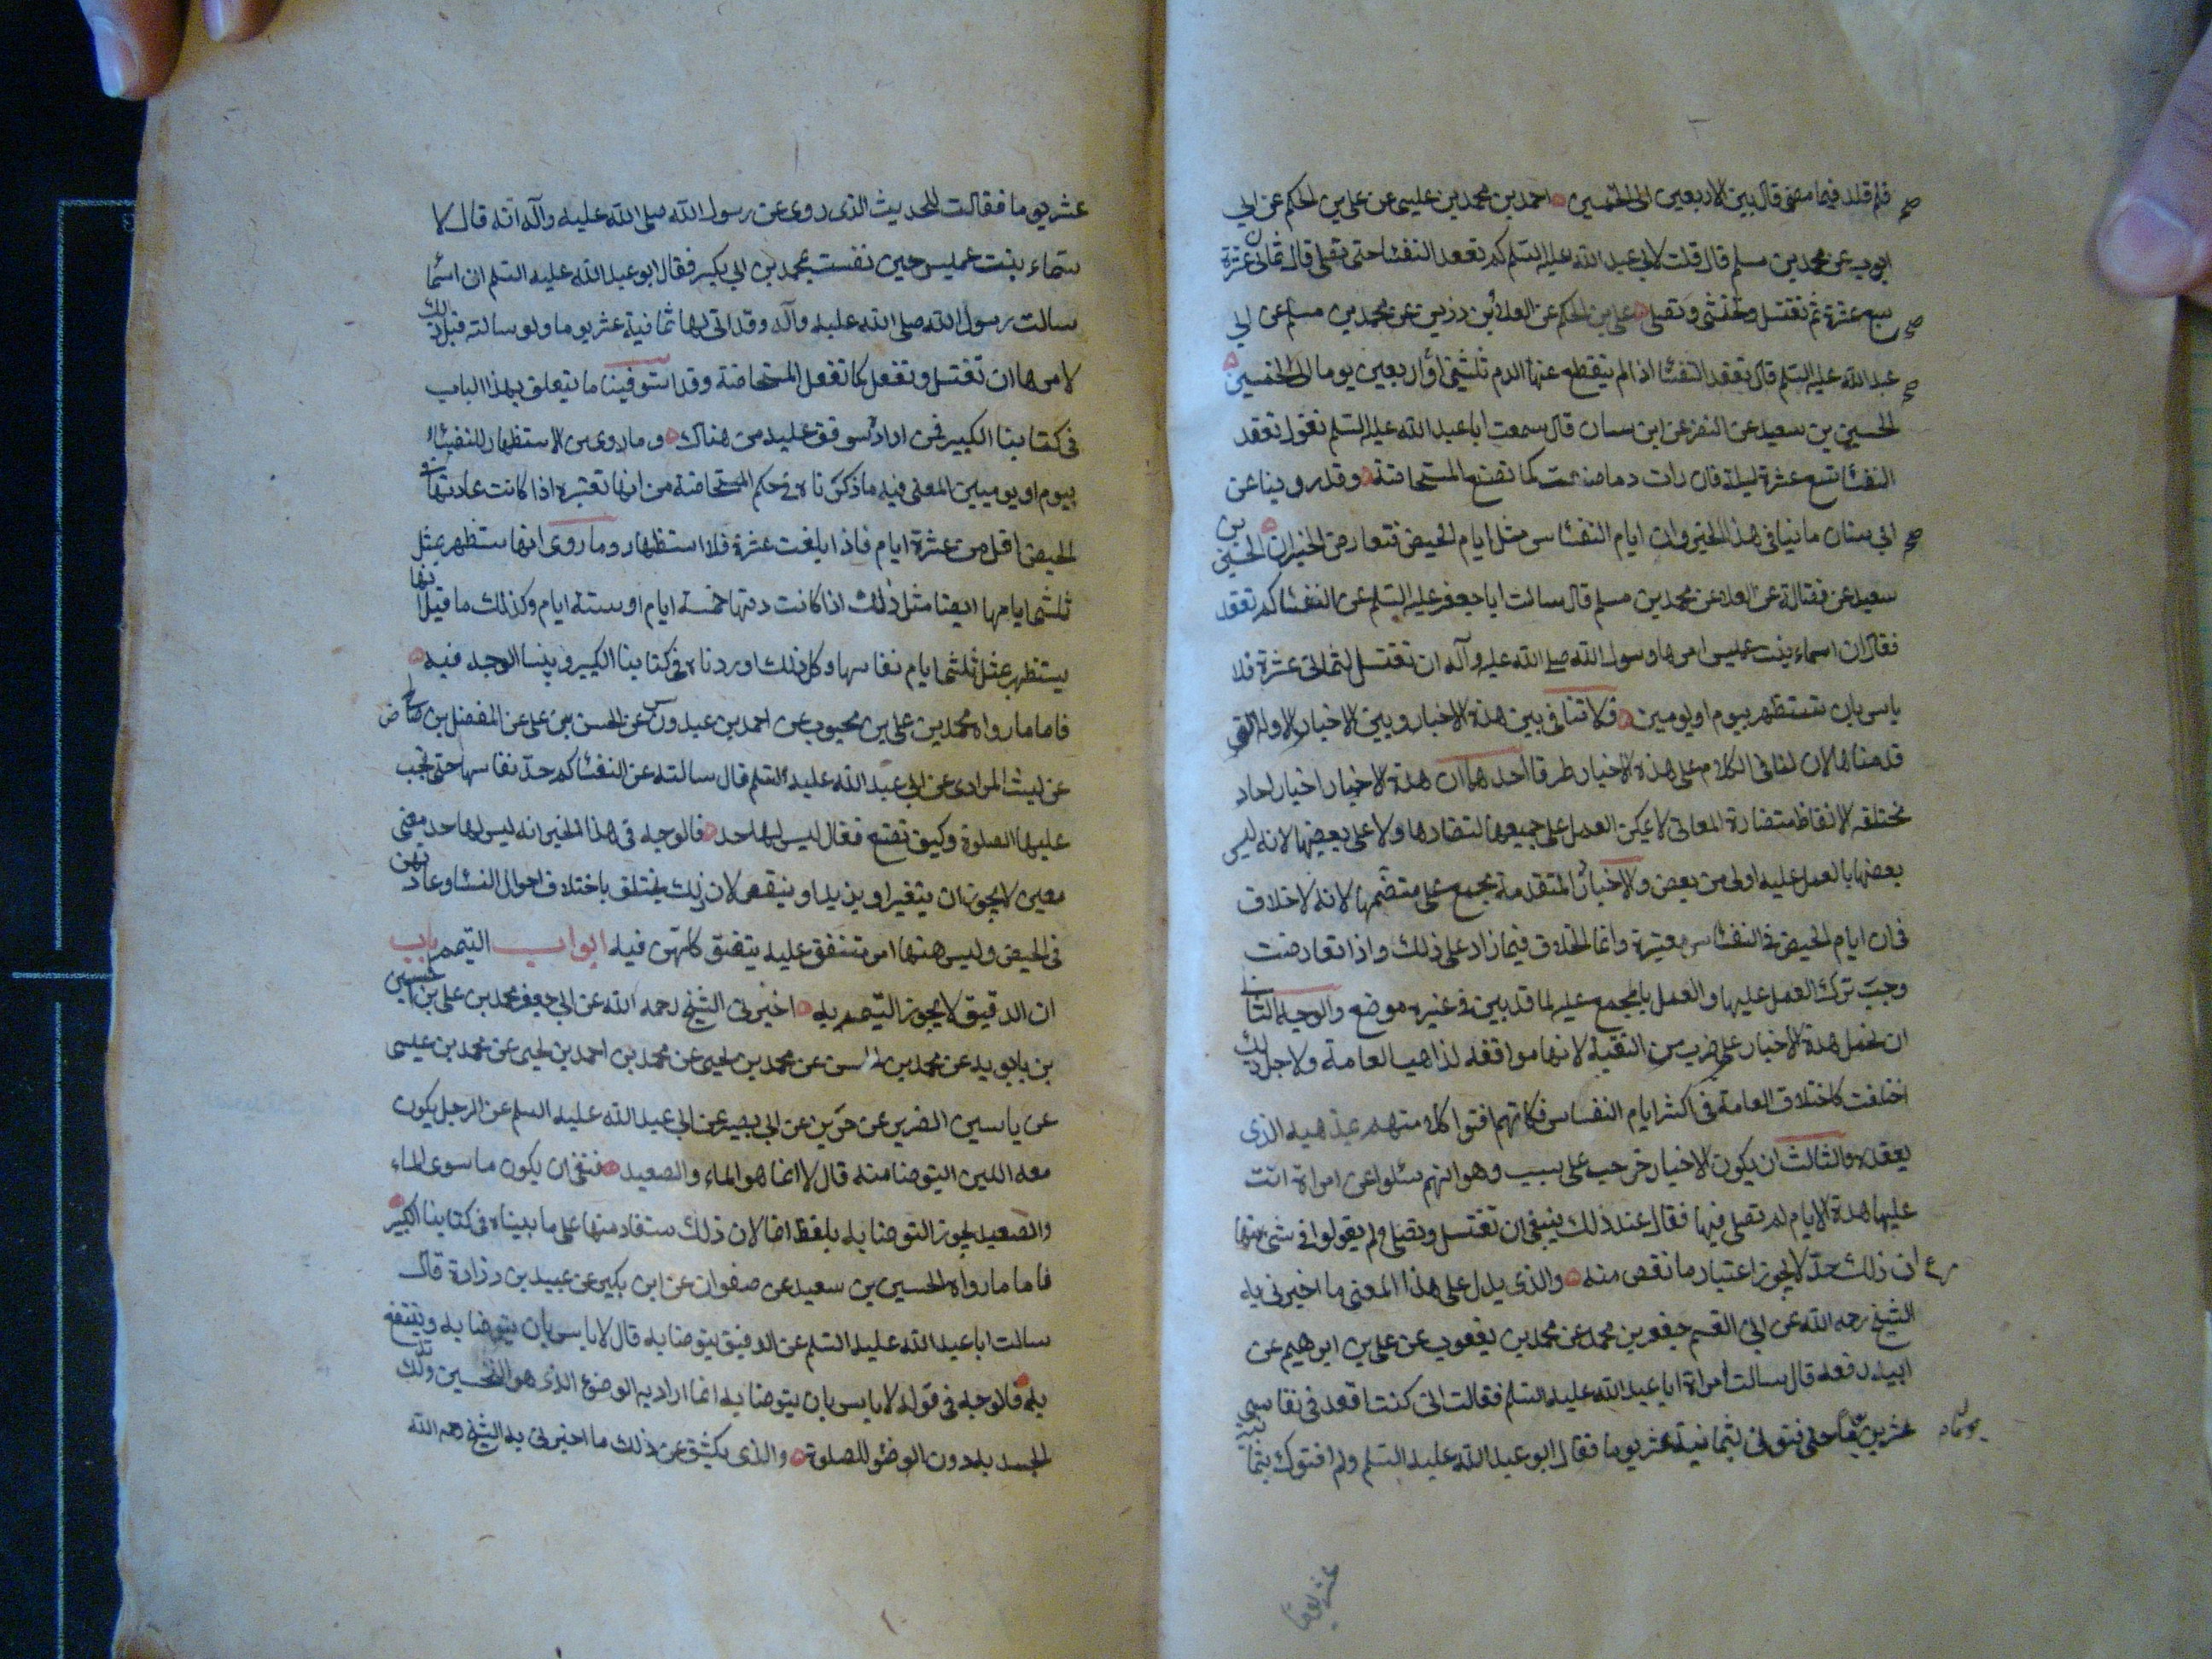 فلم قلد فيما مضى قال بين الاربعين الى الخمسين احمد بن محمد بن عيسى عن على بن الحكم عن ابى
ايوب عن محمد بن مسلم قال قلت لابى عبد الله عليه السلم كم تقعد النفساء حتى تصلى قال ثمانى عشرة
سبع عشرة ثم تغتسل وتحتشى وتصلى على بن الحكم عن العلاء بن رزين عن محمد بن مسلم عن ابى
عبد الله عليه السلم قال تقعد النفساء اذا لم ينقطع عنها الدم ثلثين او اربعين يوما الى الخمسين
الحسين بن سعيد عن النضر عن ابن سنان قال سمعت ابا عبد الله عليه السلم يقول تقعد
النفساء تسع عشرة ليلة فان رات دما صنعت كما تصنع المستحاضة وقد روينا عن
ابن سنان ما ينافى هذا الخبر وان ايام النفساء مثل ايام الحيض فتعارض الخبران الحسين بن
سعيد عن فضالة عن العلاء عن محمد بن مسلم قال سالت ابا جعفر عليه السلم عن النفساء كم تقعد
فقال ان اسماء بنت عميس امرها رسول الله صلى الله عليه وآله ان تغتسل لثمانى عشرة فلا
باس بان تستظهر بيوم او يومين فلا تنافى بين هذه الاخبار وبين الاخبار الاولة التى
قدمناها لان لنا فى الكلام على هذه الاخبار طرقا احدها ان هذه الاخبار اخبار احاد
مختلفة الالفاظ متضادة المعانى لا يمكن العمل على جميعها لتضادها ولا على بعضها لانه ليس
بعضها بالعمل عليه اولى من بعض والاخبار المتقدمة مجمع على متضمنها لانه لا خلاف
فى ان ايام الحيض فى النفاس معتبرة وانما الخلاف فيما زاد على ذلك واذا تعارضت
وجب ترك العمل عليها والعمل بالمجمع عليه لما قد بين فى غيره موضع والوجه الثانى
ان نحمل هذه الاخبار على ضرب من التقية لانها موافقة لمذاهب العامة ولاجل ذلك
اختلفت كاختلاف العامة فى اكثر ايام النفاس فكانهم افتوا كلا منهم بمذهبه الذى
يعتقده والثالث ان يكون الاخبار خرجت على سبب وهو انهم سئلوا عن امراة اتت
عليها هذه الايام لم تصلى فيها فقال عند ذلك ينبغى ان تغتسل وتصلى ولم يقولوا فى شىء منها
ان ذلك حد لا يجوز اعتبار ما نقص منه والذى يدل على هذا المعنى ما اخبرنى به
الشيخ رحمه الله عن ابى القسم جعفر بن محمد عن محمد بن يعقوب عن على بن ابرهيم عن
ابيه رفعه قال سالت امراة ابا عبد الله عليه السلم فقالت انى كنت اقعد فى نفاسى
عشرين يوما حتى افتونى بثمانية عشر يوما فقال ابو عبد الله عليه السلم ولم افتوك بثمانية
عشر يوما
عشر يوما فقالت للحديث الذى روى عن رسول الله صلى الله عليه وآله انه قال لا
سماء بنت عميس حين نفست بمحمد بن ابى بكير فقال ابو عبد الله عليه السلم ان اسماء
سالت رسول الله صلى الله عليه وآله وقد اتى لها ثمانية عشر يوما ولو سالته قبل ذلك
لامرها ان تغتسل وتفعل كما تفعل المستحاضة وقد استوفينا ما يتعلق بهذا الباب
فى كتابنا الكبير فمن اراده وقف عليه من هناك وما روى من الاستظهار للنفساء
بيوم او يومين المعنى فيه ما ذكرناه فى حكم المستحاضة من انها تعتبره اذا كانت عادتها فى
الحيض اقل من عشرة ايام فاذا بلغت عشرة فلا استظهار وما روى انها ستظهر بمثل
ثلثى ايامها ايضا مثل ذلك اذا كانت دتها خمسة ايام او ستة ايام وكذلك ما قيل انها
يستظهر بمثل ثلثى ايام نفاسها وكل ذلك اوردناه فى كتابنا الكبير وبينا الوجه فيه
فاما ما رواه محمد بن على بن محبوب عن احمد بن عبدوس عن الحسن بن على عن المفضل بن صالح
عن ليث المرادى عن ابى عبد الله عليه السلم قال سالته عن النفساء كم حد نفاسها حتى تجب
عليها الصلوة وكيف تصنع فقال ليس لها حد فالوجه فى هذا الخبر انه ليس لها حد
معين لا يجوز ان يتغير او يزيد او ينقص لان ذلك يختلف باختلاف احوال النساء وعادتهن
فى الحيض وليس هنها امر متفق عليه يتفق كلهن فيه ابواب التيمم باب
ان الدقيق لا يجوز التيمم به اخبرنى الشيخ رحمه الله عن ابى جعفر محمد بن على بن الحسين
بن بابويه عن محمد بن الحسن عن محمد بن يحيى عن محمد بن احمد بن يحيى عن محمد بن عيسى
عن ياسين الضرير عن حريز عن ابى بصير عن ابى عبد الله عليه السلم عن الرجل يكون
معه اللبن اليتوضا منه قال لا انما هو الماء والصعيد فنفى ان يكون ما سوى الماء
والصعيد يجوز التوضا به بلفظ انما لان ذلك ستفاد منها على ما بيناه فى كتابنا الكبير
فاما ما رواه الحسين بن سعيد عن صفوان عن ابن بكير عن عبيد بن زرارة قال
سالت ابا عبد الله عليه السلم عن الدقيق يتوضا به قال لا باس بان يتوضا به وينتفع
به فالوجه فى قوله لا باس بان يتوضا به انما اراد به الوضوء الذى هو التحسين وتدلك
الجسد به دون الوضوء للصلوة والذى يكشف عن ذلك ما اخبرنى به الشيخ رحمه الله